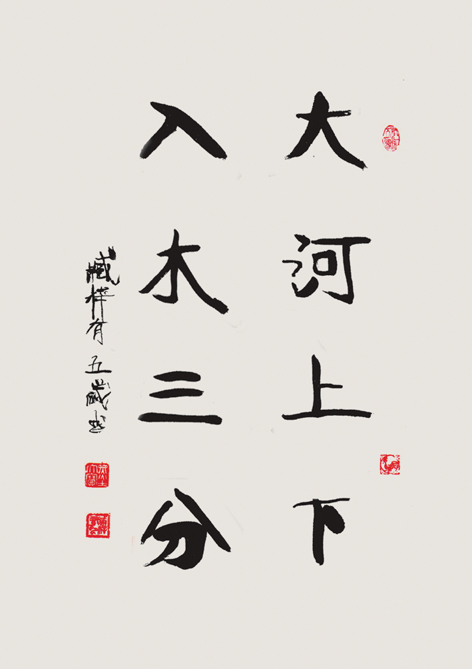 大河上下
入木三分
臧梓有五歲書